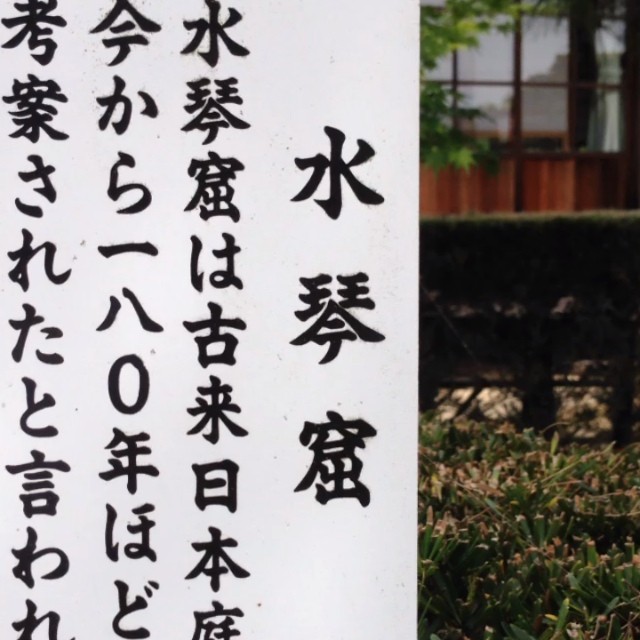 水琴窟
水琴窟は古来日本庭
今から一八０年ほど
考案されたと言われ